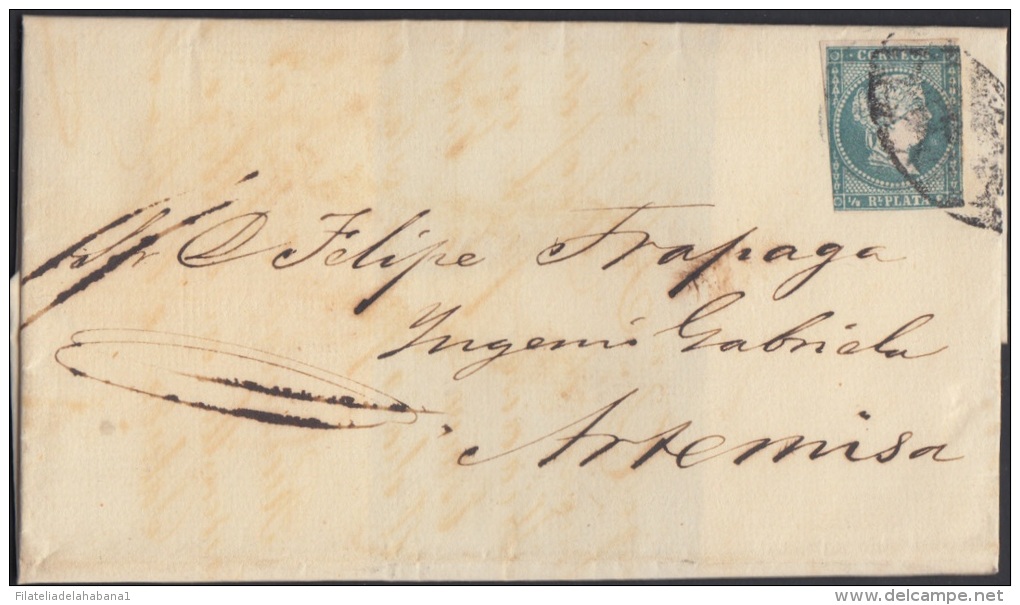 CORREOS
½ Rl. PLATA F.
Sr. D Felipe Frapaga
Ingenio Gabriela
Artemisa
Filateliadelahabana1
www.delcampe.net